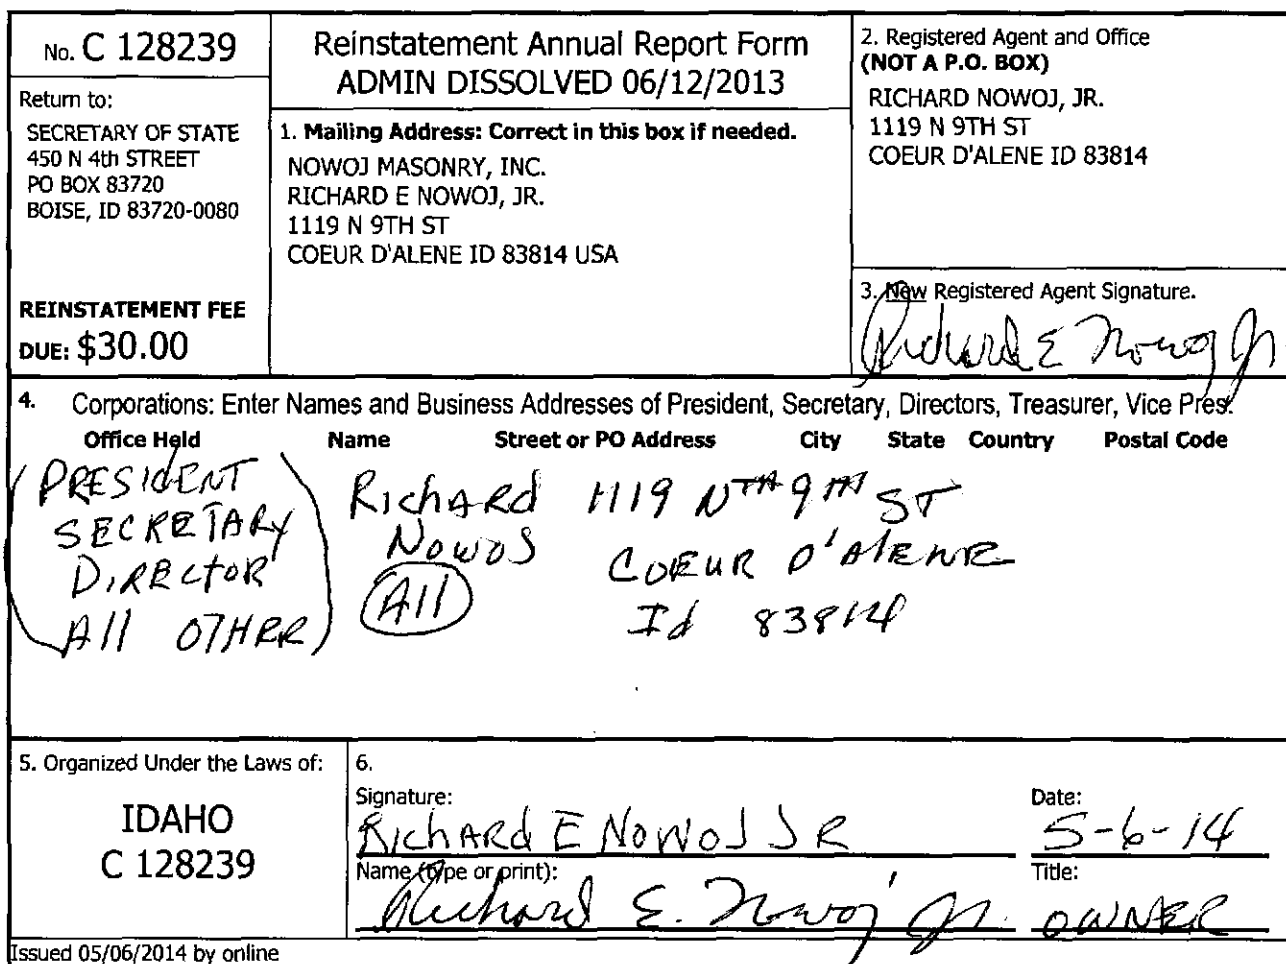 No. C 128239
Return to:
SECRETARY OF STATE
450 N 4th STREET
PO BOX 83720
BOISE, ID 83720-0080
REINSTATEMENT FEE
DUE: $30.00
Reinstatement Annual Report Form
ADMIN DISSOLVED 06/12/2013
1. Mailing Address: Correct in this box if needed.
NOWOJ MASONRY, INC.
RICHARD E NOWOJ, JR.
1119 N 9TH ST
COEUR D'ALENE ID 83814 USA
2. Registered Agent and Office
(NOT A P.O. BOX)
RICHARD NOWOJ, JR.
1119 N 9TH ST
COEUR D'ALENE ID 83814
3. New Registered Agent Signature.
Richard E Nowoj Jr
4. Corporations: Enter Names and Business Addresses of President, Secretary, Directors, Treasurer, Vice Pres.
Office Held Name Street or PO Address City State Country Postal Code
PRESIDENT Richard 1119 NTH 9TH ST
SECRETARY Nowoj COEUR D'AlENE
DIRECtOR All Id 83814
All OTHER
5. Organized Under the Laws of:
IDAHO
C 128239
6.
Signature: Date:
RichARd E NOWOJ JR 5-6-14
Name (type or print): Title:
Richard E. Nowoj Jr. OWNER
Issued 05/06/2014 by online